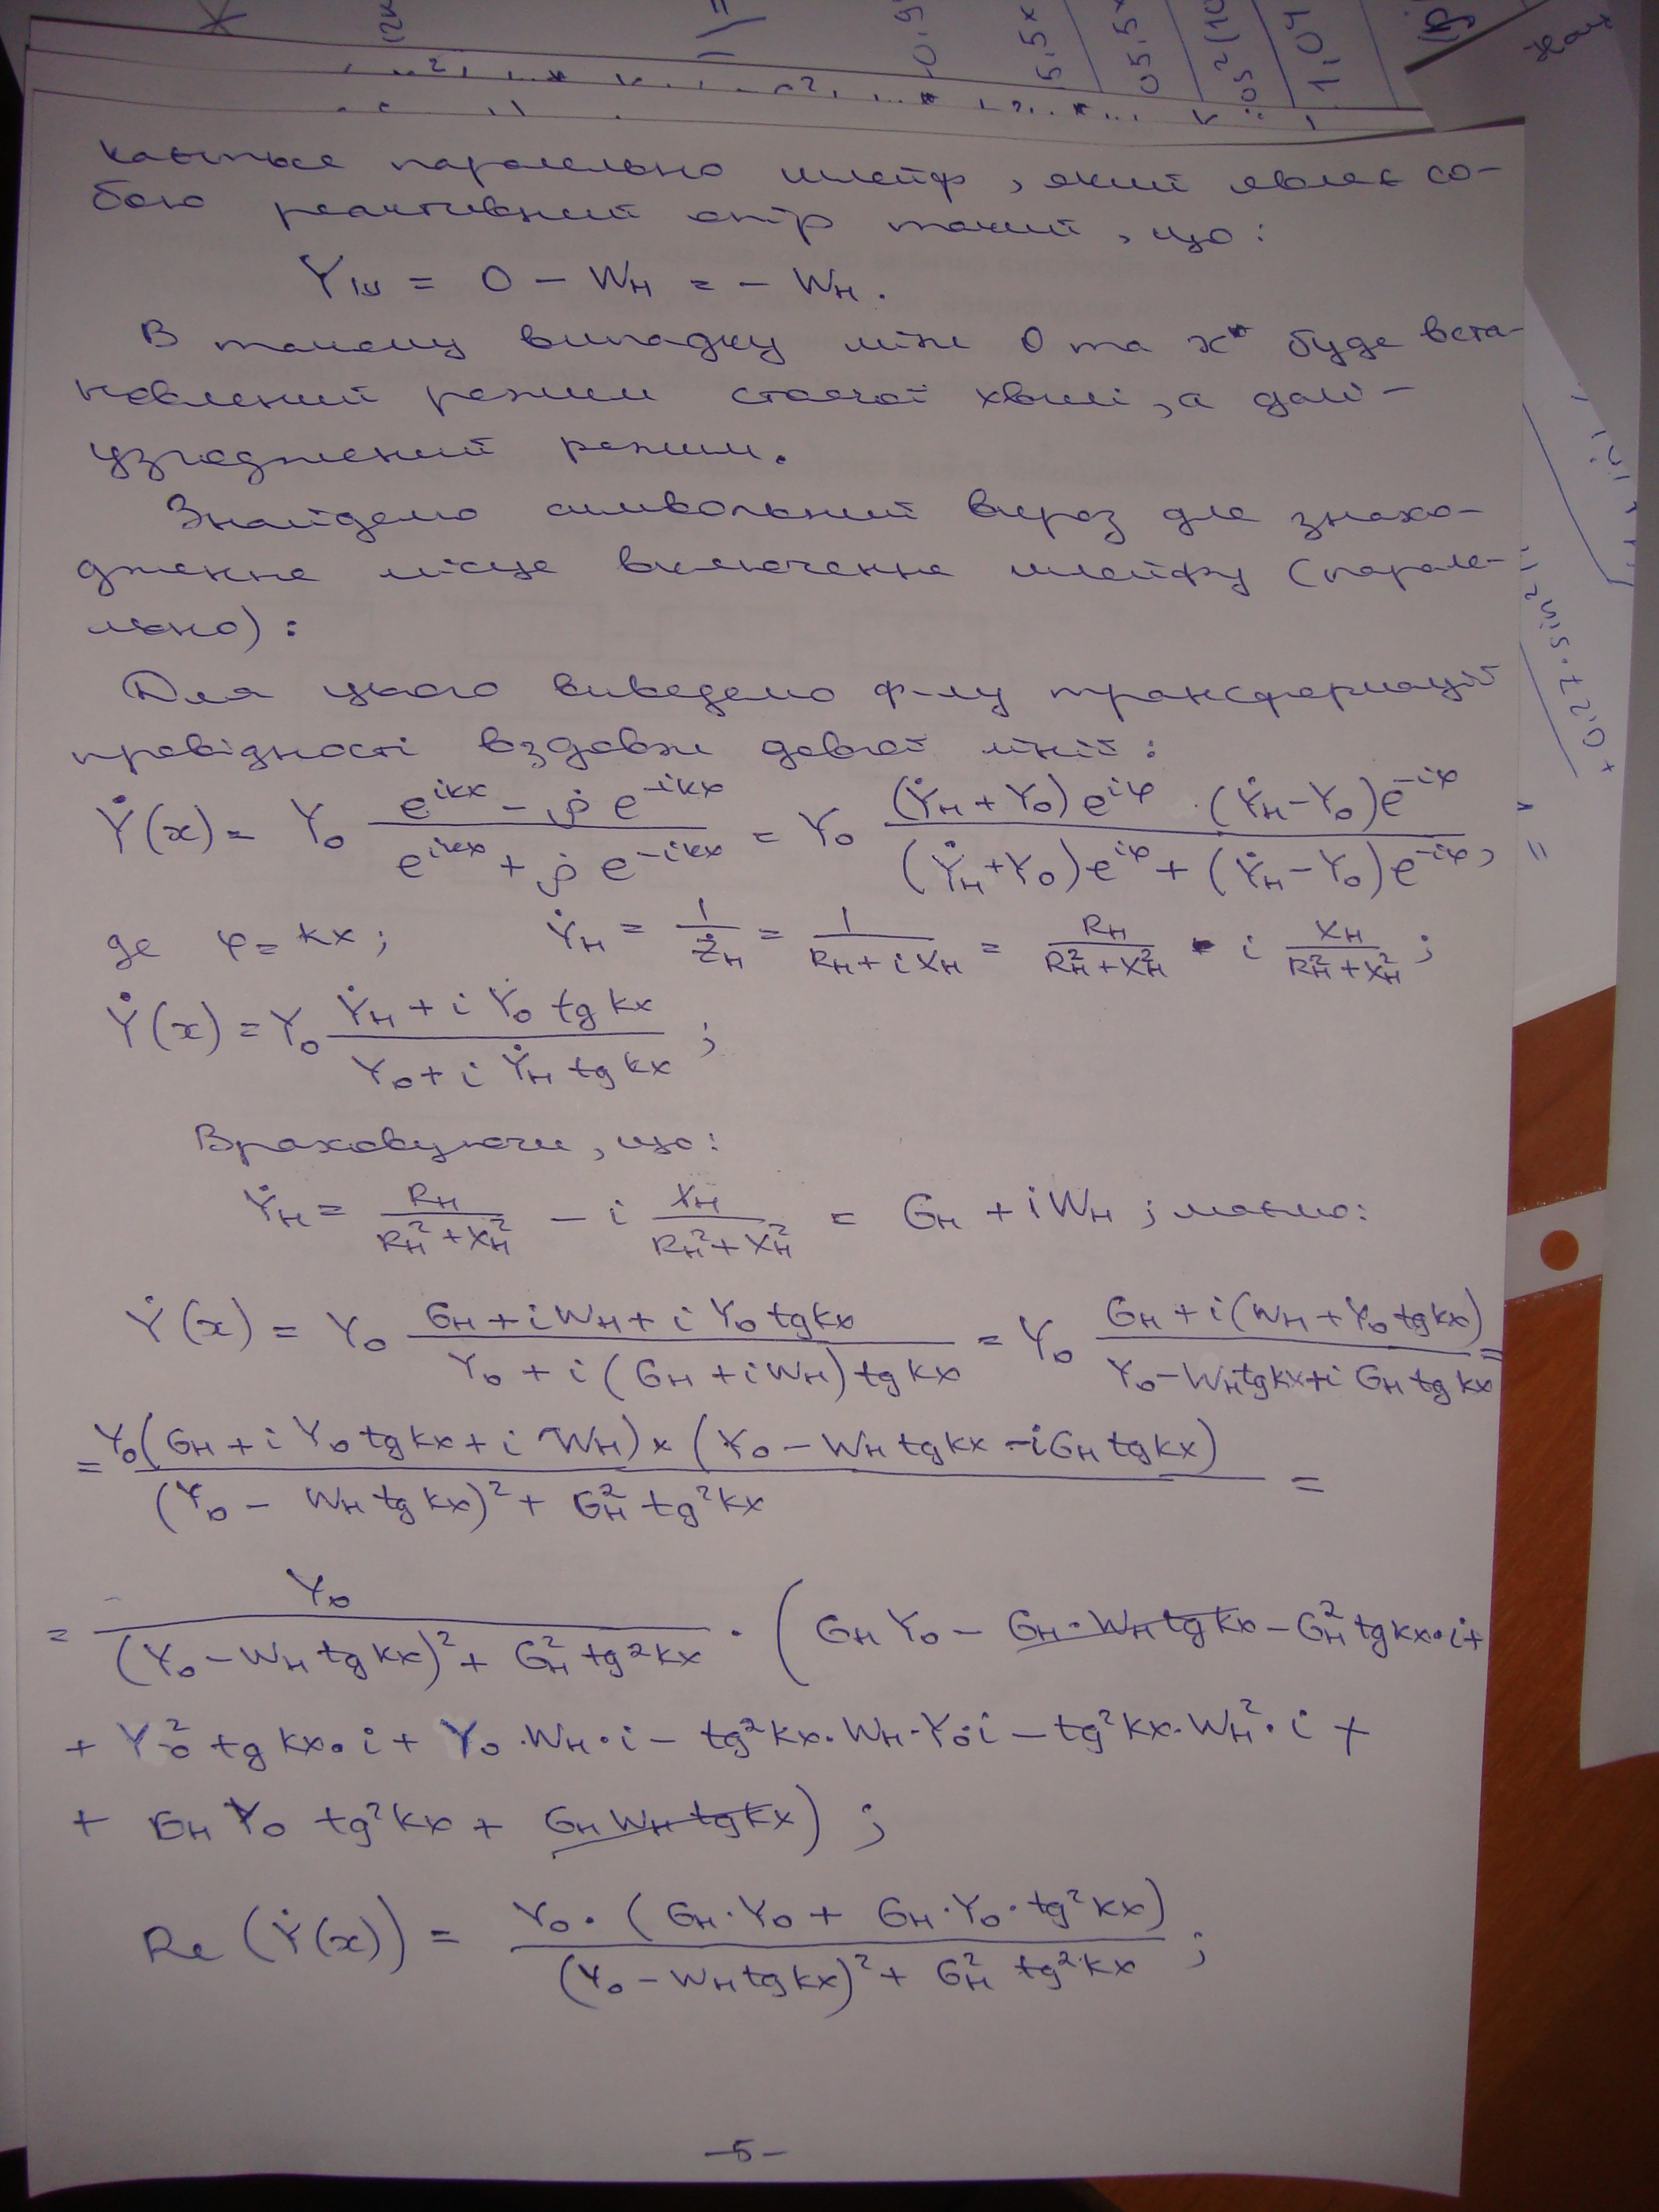 паралельно шлейф, який являє со-
бою реактивний опір такий, що:
Yш = 0 - Wн = - Wн.
В такому випадку між 0 та x* буде вста-
новлений режим стоячої хвилі, а далі -
узгоджений режим.
Знайдемо символьний вираз для знахо-
дження місця включення шлейфу (парале-
льно):
Для цього виведемо ф-лу трансформації
провідності вздовж довгої лінії:
Ẏ(x) = Y₀ (e^{ikx} - ρ̇ e^{-ikx}) / (e^{ikx} + ρ̇ e^{-ikx}) = Y₀ ((Ẏн + Y₀) e^{iφ} · (Ẏн - Y₀) e^{-iφ}) / ((Ẏн + Y₀) e^{iφ} + (Ẏн - Y₀) e^{-iφ}),
де φ = kx; Ẏн = 1/Żн = 1/(Rн + iXн) = Rн/(Rн² + Xн²) - i Xн/(Rн² + Xн²);
Ẏ(x) = Y₀ (Ẏн + i Ẏ₀ tg kx) / (Y₀ + i Ẏн tg kx);
Враховуючи, що:
Ẏн = Rн/(Rн² + Xн²) - i Xн/(Rн² + Xн²) = Gн + iWн; маємо:
Ẏ(x) = Y₀ (Gн + iWн + i Y₀ tg kx) / (Y₀ + i (Gн + iWн) tg kx) = Y₀ (Gн + i(Wн + Y₀ tg kx)) / (Y₀ - Wн tg kx + i Gн tg kx) =
= Y₀(Gн + i Y₀ tg kx + i Wн) × (Y₀ - Wн tg kx - iGн tg kx) / ((Y₀ - Wн tg kx)² + Gн² tg² kx) =
= Y₀ / ((Y₀ - Wн tg kx)² + Gн² tg² kx) · (Gн Y₀ - Gн · Wн tg kx - Gн² tg kx · i +
+ Y₀² tg kx · i + Y₀ · Wн · i - tg² kx · Wн · Y₀ · i - tg² kx · Wн² · i +
+ Gн Y₀ tg² kx + Gн Wн tg kx);
Re (Ẏ(x)) = Y₀ · (Gн · Y₀ + Gн · Y₀ · tg² kx) / ((Y₀ - Wн tg kx)² + Gн² tg² kx);
-5-